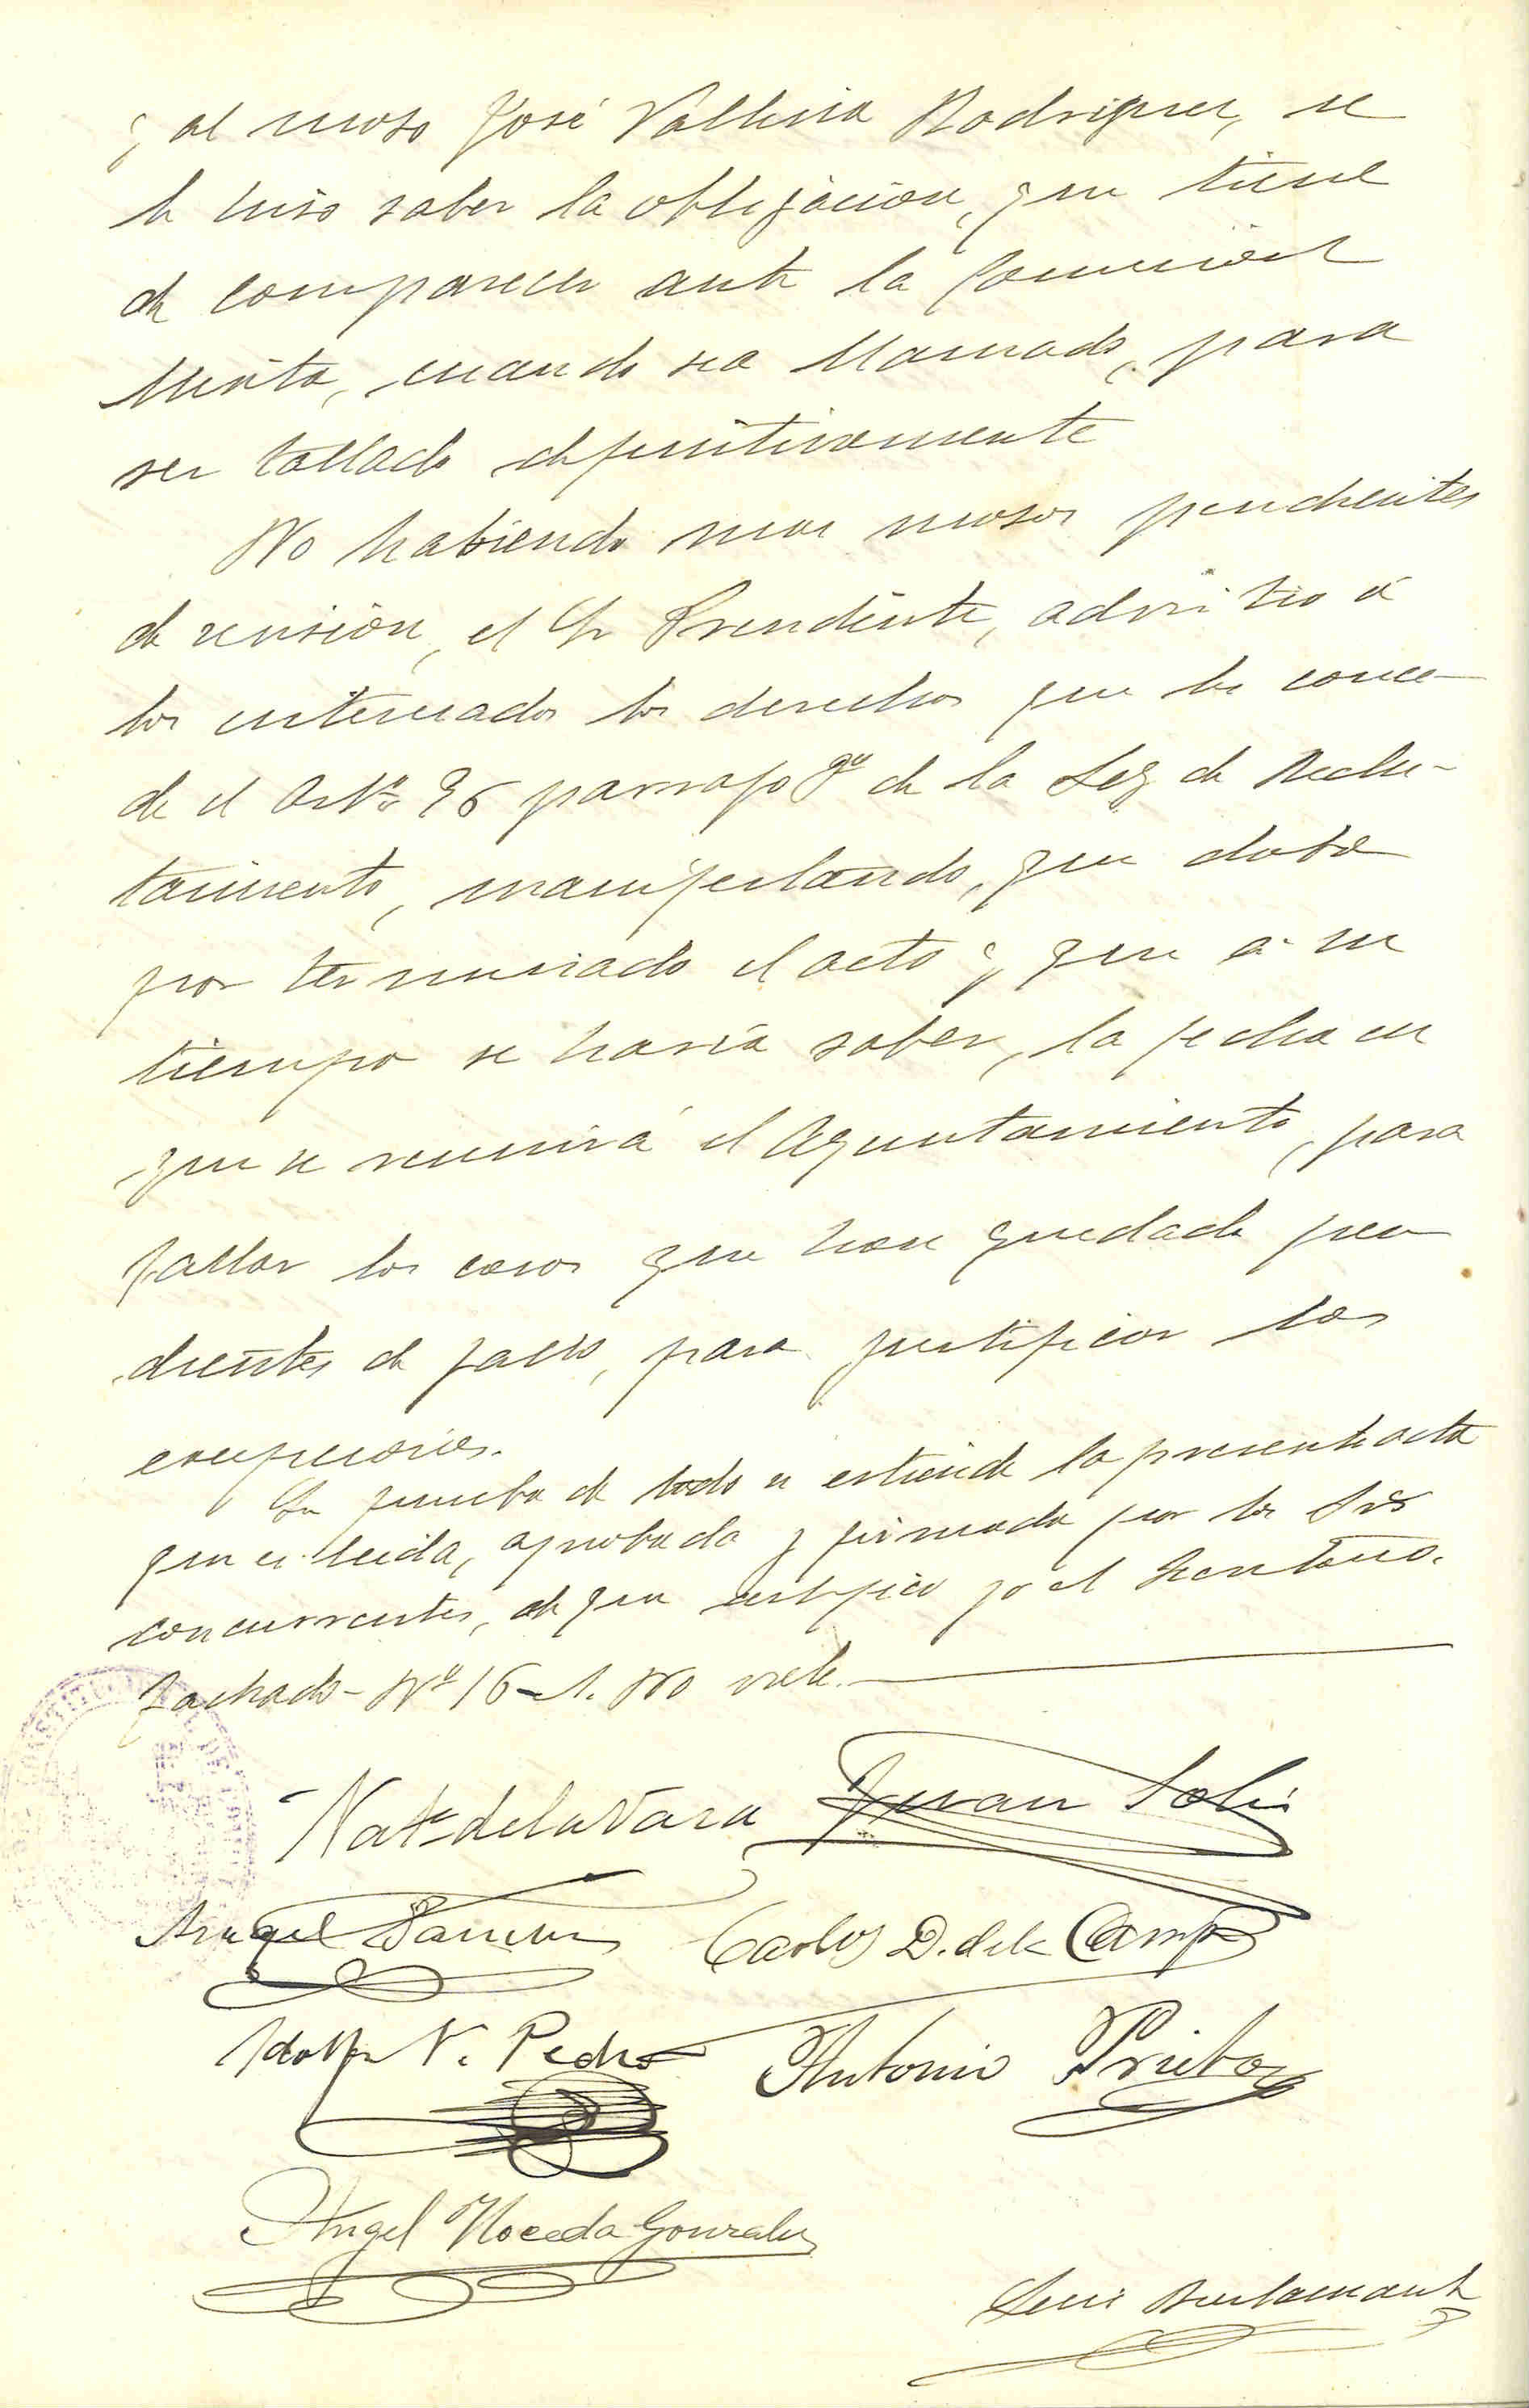 y al moso José Vallina Rodriguez, se
le hiso saber la obligación, que tiene
de comparecer ante la Comisión
Mixta, cuando sea llamado, para
ser tallado definitivamente
No habiendo mas mosos pendientes
de revisión, el Sr Presidente, advirtio á
los interesados los derechos que les conce-
de el Artº 96 parrafo 2º de la Ley de Reclu-
tamiento, manifestando, que daba
por terminado el acto y que á su
tiempo se haría saber, la fecha en
que se reunirá el Ayuntamiento, para
fallar los casos que han quedado pen
dientes de fallo, para justificar las
excepciones.
En prueba de todo se extiende la presente acta
que es leida, aprobada y firmada por los Srs
concurrentes, de que certifico yo el Secretario.
Tachado - Nº 16 - No vale.
Nate de la Vara Juan Solis
Angel Sanchez Carlos D. de la Campa
Adolfo V. Pedro Antonio Prieto
Angel Noceda Gonzalez
Luis Bustamante